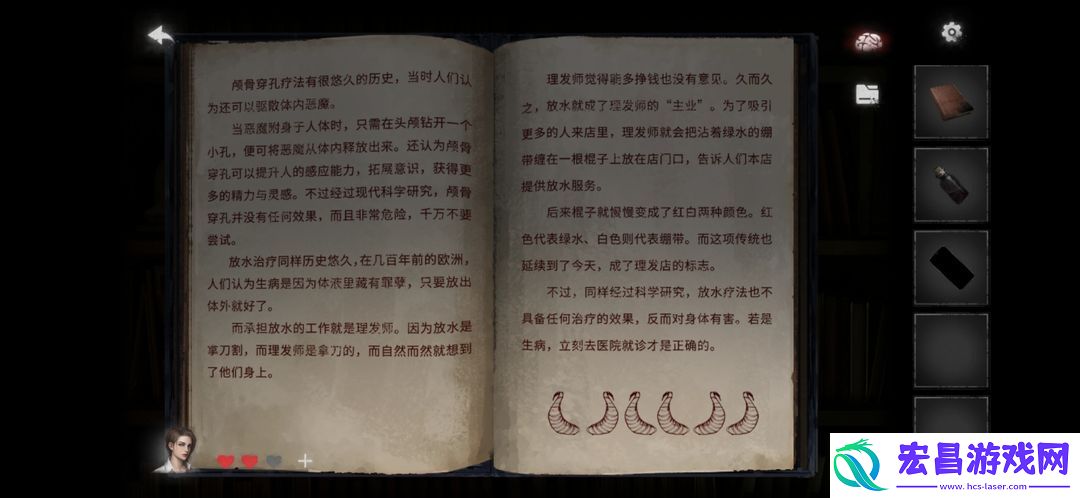 颅骨穿孔疗法有很悠久的历史，当时人们认
为还可以驱散体内恶魔。
当恶魔附身于人体时，只需在头颅钻开一个
小孔，便可将恶魔从体内释放出来。还认为颅骨
穿孔可以提升人的感应能力，拓展意识，获得更
多的精力与灵感。不过经过现代科学研究，颅骨
穿孔并没有任何效果，而且非常危险，千万不要
尝试。
放水治疗同样历史悠久，在几百年前的欧洲，
人们认为生病是因为体液里藏有罪孽，只要放出
体外就好了。
而承担放水的工作就是理发师。因为放水是
拿刀割，而理发师是拿刀的，而自然而然就想到
了他们身上。
理发师觉得能多挣钱也没有意见。久而久
之，放水就成了理发师的“主业”。为了吸引
更多的人来店里，理发师就会把沾着绿水的绷
带缠在一根棍子上放在店门口，告诉人们本店
提供放水服务。
后来棍子就慢慢变成了红白两种颜色。红
色代表绿水、白色则代表绷带。而这项传统也
延续到了今天，成了理发店的标志。
不过，同样经过科学研究，放水疗法也不
具备任何治疗的效果，反而对身体有害。若是
生病，立刻去医院就诊才是正确的。
宏昌游戏网
www.hcs-laser.com